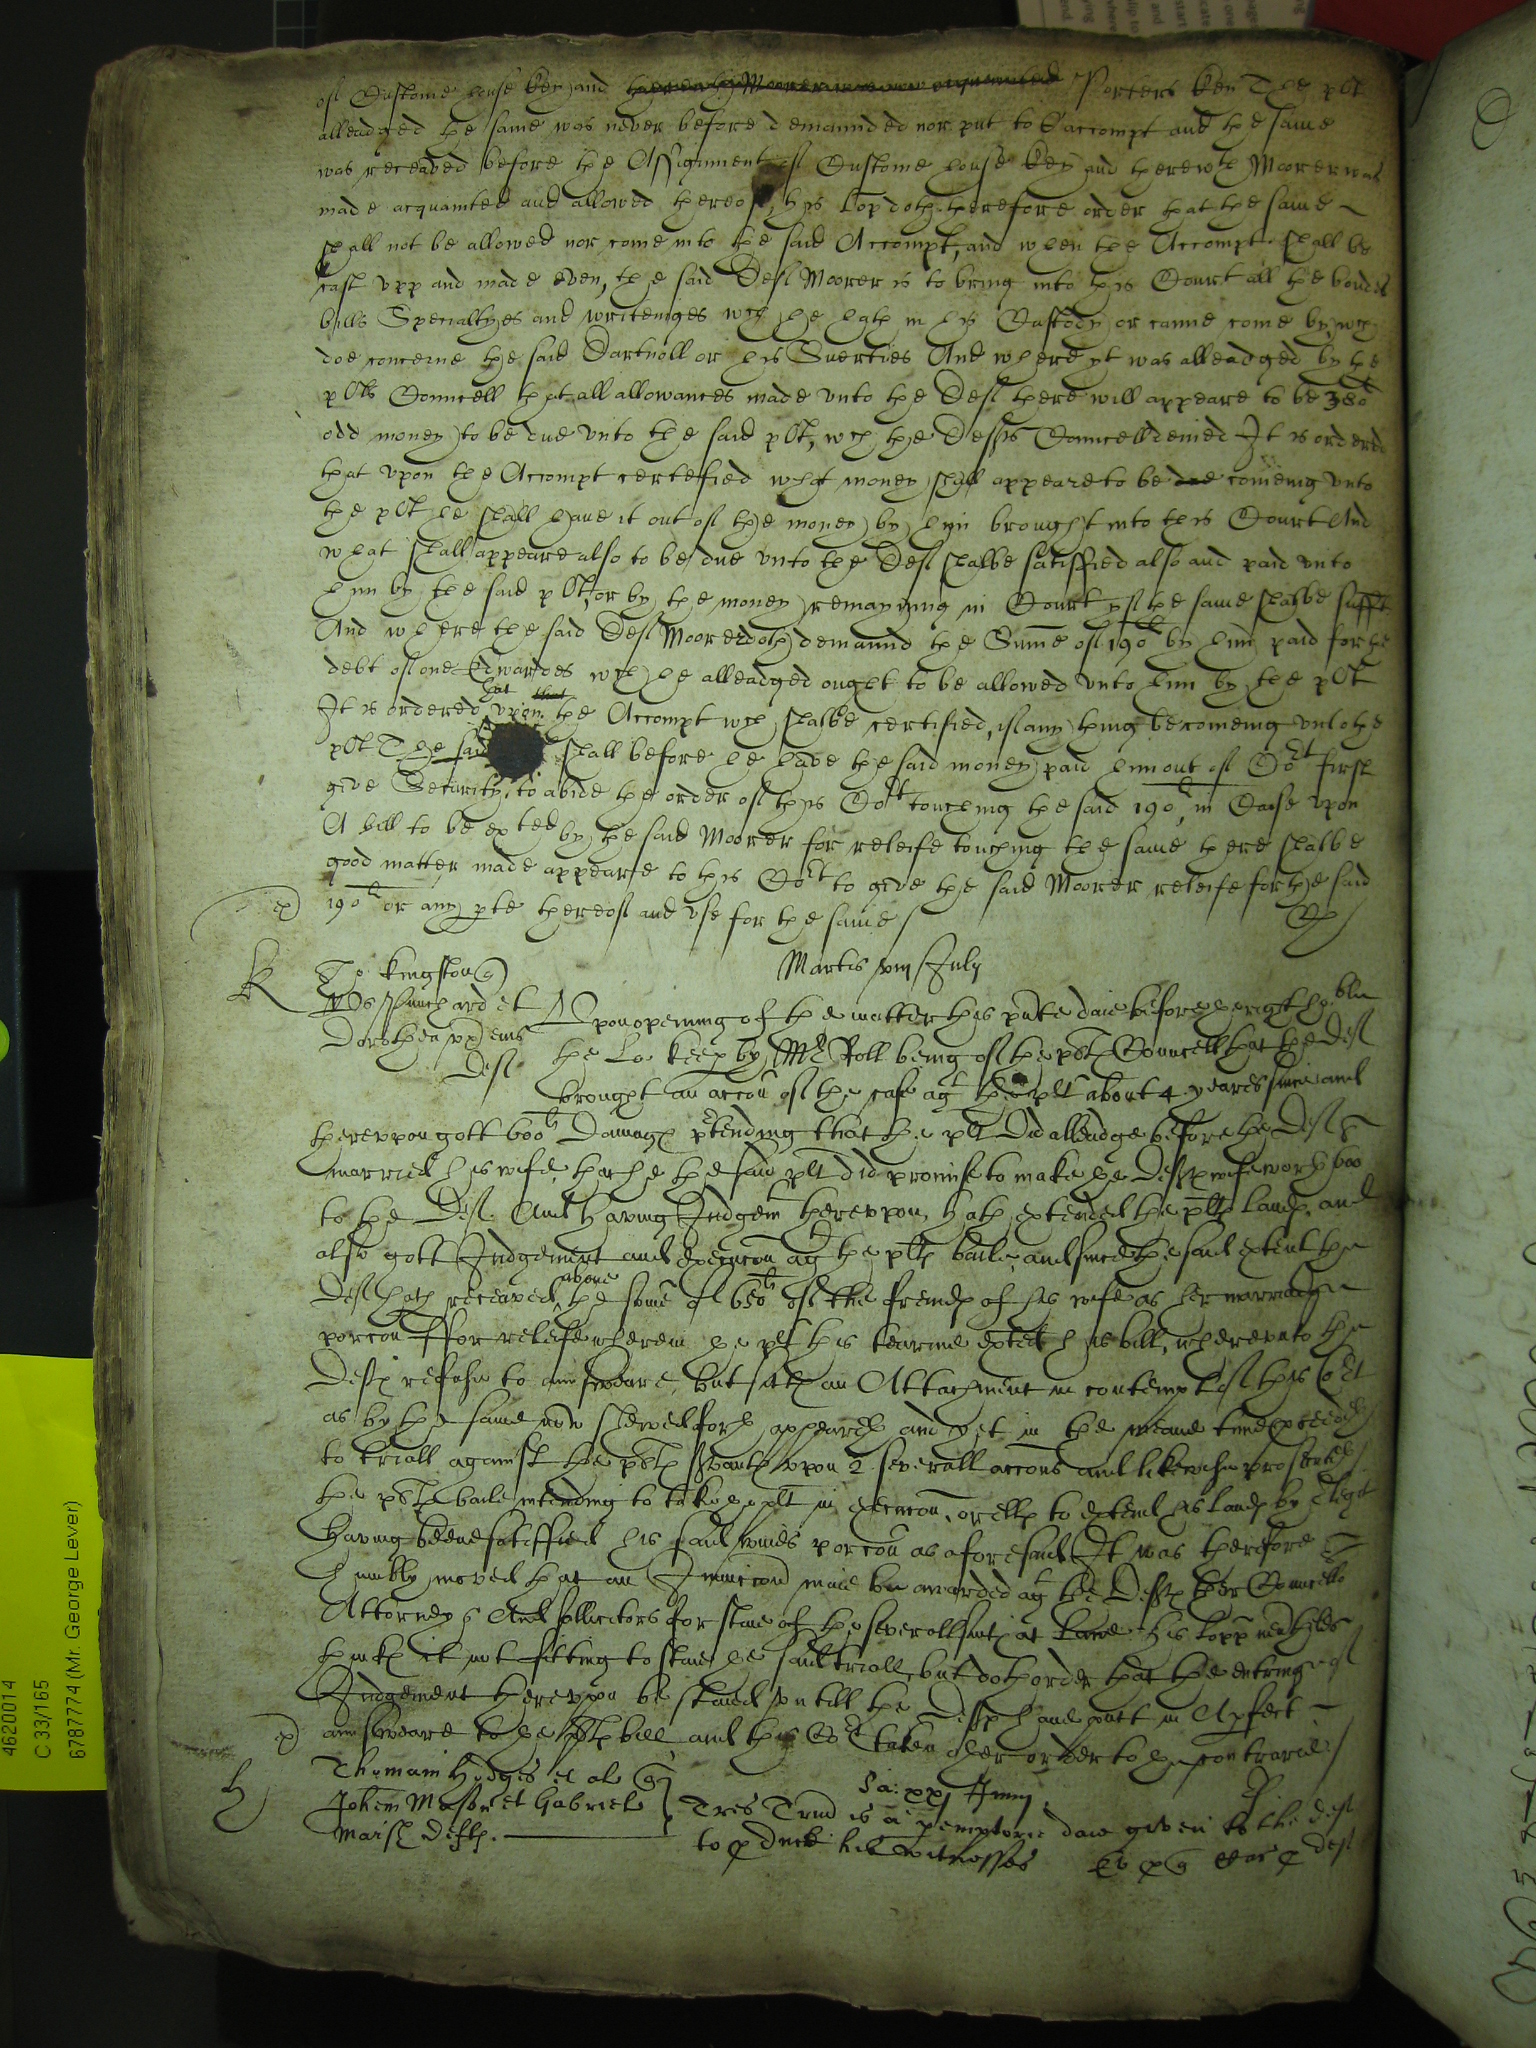 of Custome house key and Porters key The plt
alleadged the same was never before demaunded nor put to Accompt and the same
was receaved before the Assignment of Custome house key and therewth Moorer was
made acquainted and allowed thereof, his Lop doth therefore order that the same
shall not be allowed nor come into the said Accompt, and when the Accompt shall be
cast upp and made even, the said Deft Moorer is to bring into this Court all the bondes
bills Specialtyes and writeinges wch he hath in his Custody or canne come by wch
doe concerne the said Dartnoll or his Suerties And where yt was alleadged by the
plts Councell that all allowances made unto the Deft there will appeare to be 380
odd money to be due unto the said plt, wch the Defts Councell denied It is ordered
that upon the Accompt certefied what money shall appeare to be due comeing unto
the plt he shall have it out of the money by him brought into this Court And
what shall appeare also to be due unto the Deft shalbe satisfied also and paid unto
him by the said plt, or by the money remayning in Court yf the same shalbe suffit
And where the said Deft Moorer doth demaund the Sume of 190l by him paid for the
debt of one Edwardes wch he alleadged ought to be allowed unto him by the plt
It is ordered that upon the Accompt wch shalbe certified, if any thing be comeing unto the
plt The said shall before he have the said money paid him out of Cort first
give Security, to abide the order of this Cort touching the said 190l, in Case upon
A bill to be exted by the said Moorer for releife touching the same there shalbe
good matter made appeare to this Cort to give the said Moorer releife for the said
190l or any pte thereof and use for the same
Martis July
K To. Kingston
Punchard et Upon opening of the matter this pnte daie before the right ho:ble
Dorothea ux eius the Lo. Keep by Mr Roll being of the plts Councell that the Deft
Deft brought an accon of the case agt the plt about 4 yeares since and
thereuppon gott 600l Damags ptending that the plt did alleadge before the Deft
married his wife, that he the said plt did promise to make the Defts wife worth 600
to the Deft And having Judgemt thereuppon, hath extended the plts lands, and
also gott Judgement and execucon agt the plts baile, and since the said extent the
Deft hath receaved above the some of 650l of the frends of his wife as her marriadge
porcon ffor releife wherein the plt this tearme exted his bill, whereunto the
Defts refuse to aunsweare, but sitt an Attachment in contempt of this Cort
as by the same now shewed forth appeareth and yet in the meane time proceed
to triall against the plts upon 2 severall accons and likewise prosecute
the plts baile intending to take the plt in execucon, or ells to extend his lands by elegit
having beene satisfied his said wives porcon as aforesaid It was therefore
humbly moved that an Iniunccon maie be awarded agt the Defts their Councello
Attorneys And sollicitors for staie of the severall suits at Lawe his Lopp neverthelesse
thinks it not fitting to staie the said triall, but doth order that the entring of
Judgement thereuppon be staied untill the Defts have putt in A pfect
aunsweare to the plts bill and this Cort taken other order to the contrarie
H Thomam Hodges et al
Johem Mason et Gabriel Tres Trin is a peremptorie daie given to the def
Marsh Deftes. to pduce his witnesses
4620014
C 33/165
6787774 (Mr. George Lever)